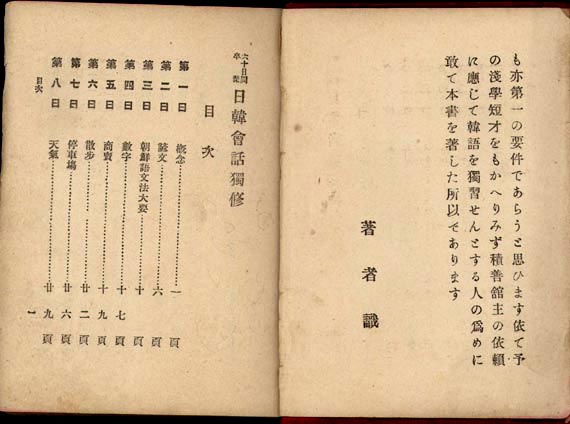 も亦第一の要件であらうと思ひます依て予
の淺學短才をもかへりみず積善舘主の依頼
に應じて韓語を獨習せんとする人の爲めに
敢て本書を著した所以であります
著者識
六十日間卒業 日韓會話獨修
目次
第一日 概念……………一頁
第二日 諺文……………六頁
第三日 朝鮮語文法大要……………十頁
第四日 數字……………十七頁
第五日 商賣……………十九頁
第六日 散步……………廿二頁
第七日 停車塲……………廿六頁
第八日 天氣……………廿九頁
目次 一